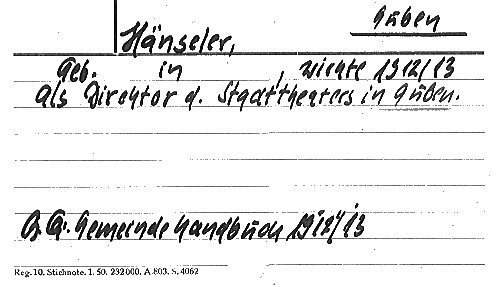 Guben
Hänseler,
Geb. in , wirkte 1912/13
als Direktor d. Stadttheaters in Guben.
Q. A. Gemeinde Handbuch 1912/13
Reg. 10. Stichnote. 1. 50. 232000. A.803. S. 4062